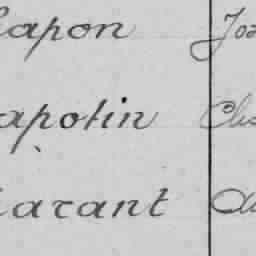 apon Jos
apotin Cha
arant